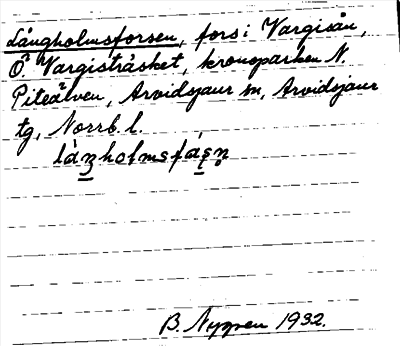 Långholmsforsen, fors i Vargisån,
Ö. Vargisträsket, kronoparken N.
Piteälven, Arvidsjaur sn, Arvidsjaur
tg, Norrb. l.
låŋholmsfåṣṇ
B. Nygren 1932.